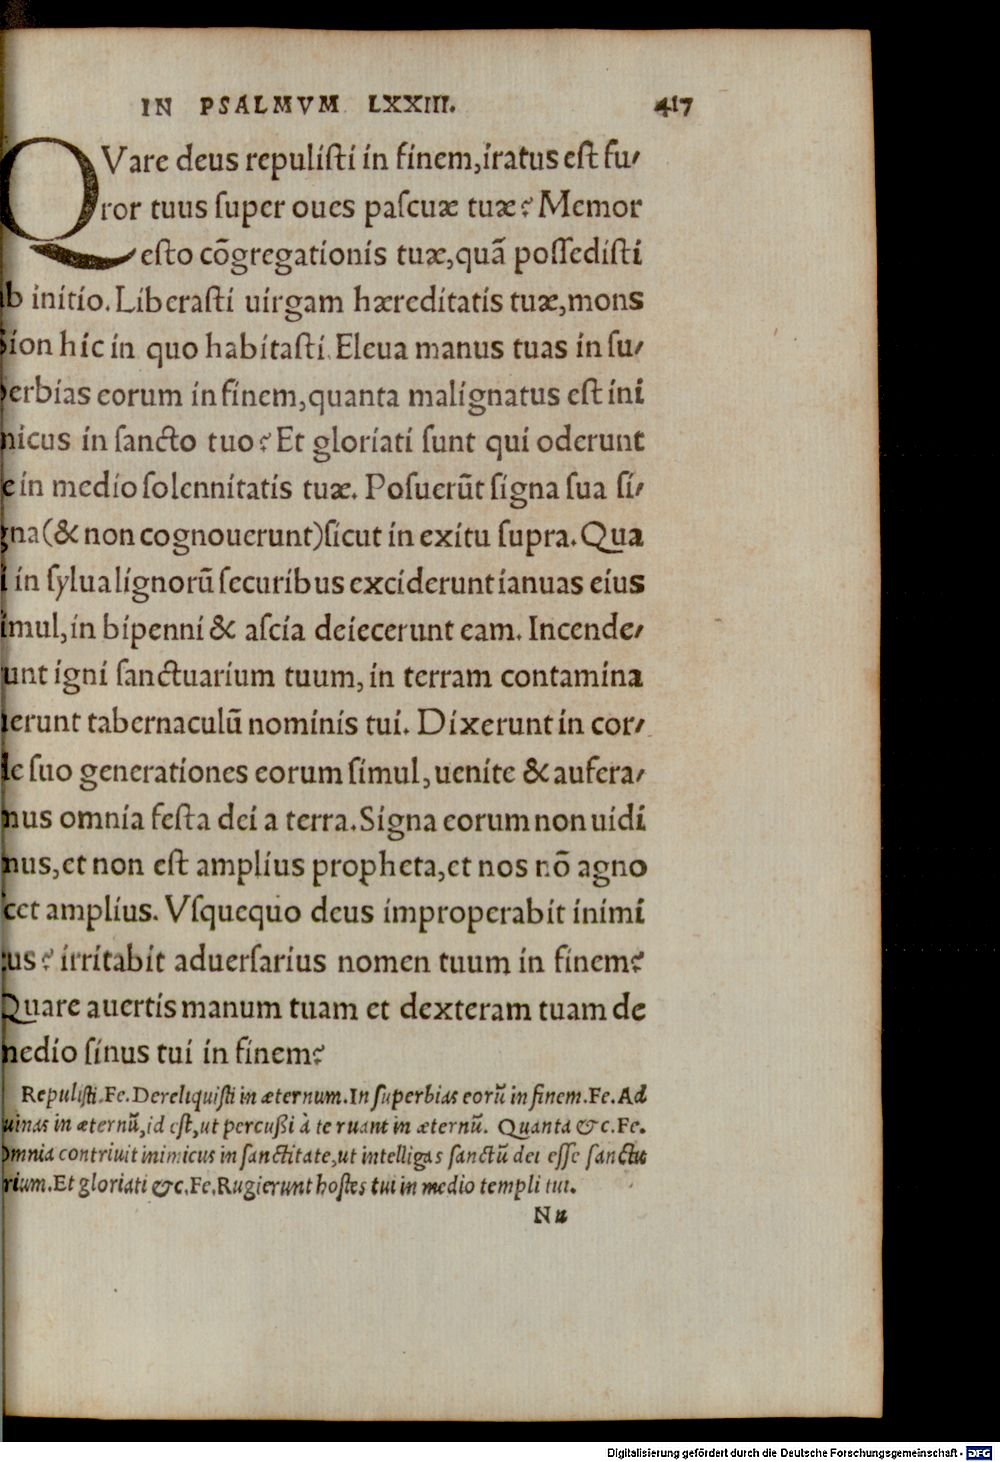 IN PSALMVM LXXIII. 417
QVare deus repulisti in finem,iratus est fu/
ror tuus super oues pascuæ tuæ? Memor
esto cōgregationis tuæ,quā possedisti
b initio. Liberasti uirgam hæreditatis tuæ,mons
sion hic in quo habitasti. Eleua manus tuas in su/
erbias eorum in finem,quanta malignatus est ini
nicus in sancto tuo? Et gloriati sunt qui oderunt
e in medio solennitatis tuæ. Posuerūt signa sua si/
gna(& non cognouerunt)sicut in exitu supra. Qua
i in sylua lignorū securibus exciderunt ianuas eius
imul,in bipenni & ascia deiecerunt eam. Incende/
unt igni sanctuarium tuum, in terram contamina
erunt tabernaculū nominis tui. Dixerunt in cor/
le suo generationes eorum simul, uenite & aufera/
nus omnia festa dei a terra. Signa eorum non uidi
nus,et non est amplius propheta,et nos nō agno
cet amplius. Vsquequo deus improperabit inimi
cus? irritabit aduersarius nomen tuum in finem?
Quare auertis manum tuam et dexteram tuam de
nedio sinus tui in finem?
Repulisti.Fe.Dereliquisti in æternum.In superbias eorū in finem.Fe.Ad
uinas in æternū,id est,ut percussi à te ruant in æternū. Quanta &c.Fe.
Omnia contriuit inimicus in sanctitate,ut intelligas sanctū dei esse sanctu
rium.Et gloriati &c.Fe.Rugierunt hostes tui in medio templi tui.
N u
Digitalisierung gefördert durch die Deutsche Forschungsgemeinschaft - DFG